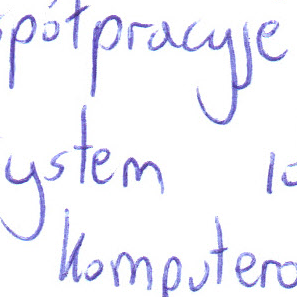 spółpracyje
ystem
komputero